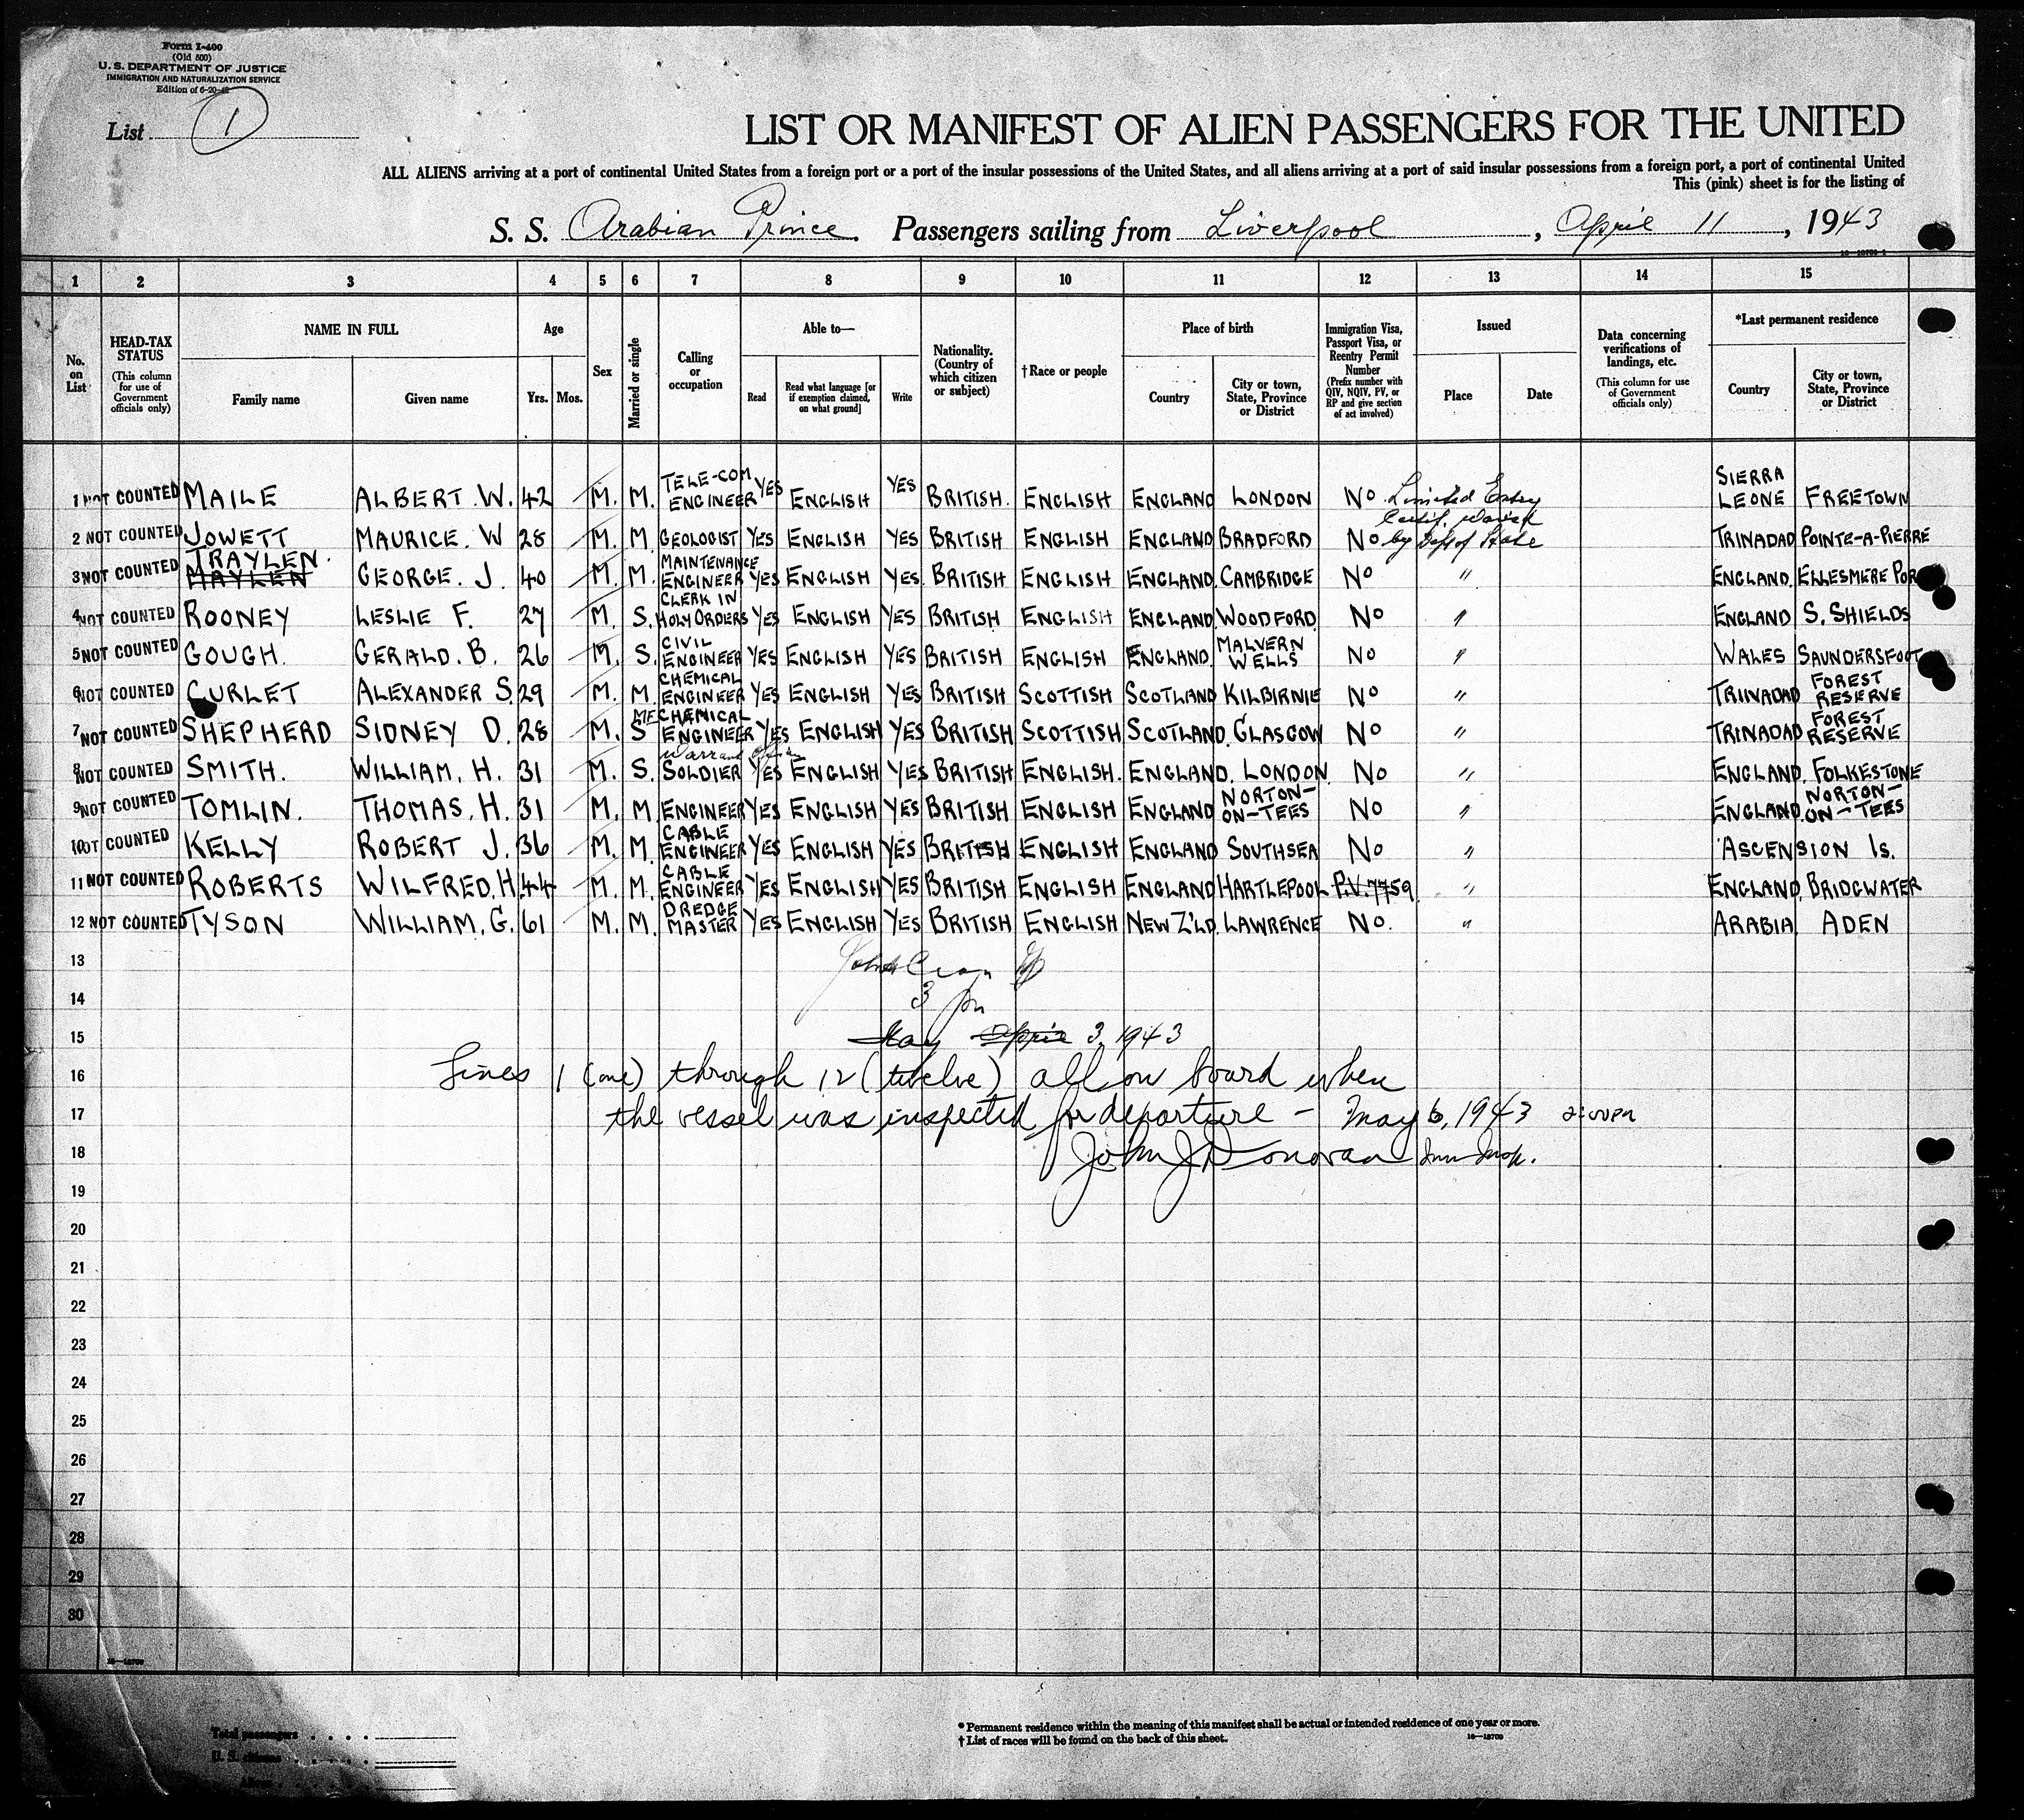 Form I-400
(Old 500)
U. S. DEPARTMENT OF JUSTICE
IMMIGRATION AND NATURALIZATION SERVICE
Edition of 6-20-42
List 1
LIST OR MANIFEST OF ALIEN PASSENGERS FOR THE UNITED
ALL ALIENS arriving at a port of continental United States from a foreign port or a port of the insular possessions of the United States, and all aliens arriving at a port of said insular possessions from a foreign port, a port of continental United
This (pink) sheet is for the listing of
S. S. Arabian Prince. Passengers sailing from Liverpool, April 11, 1943
1 2 3 4 5 6 7 8 9 10 11 12 13 14 15
No. on List
HEAD-TAX STATUS (This column for use of Government officials only)
NAME IN FULL Family name Given name
Age Yrs. Mos.
Sex
Married or single
Calling or occupation
Able to— Read Read what language [or if exemption claimed, on what ground] Write
Nationality. (Country of which citizen or subject)
†Race or people
Place of birth Country City or town, State, Province or District
Immigration Visa, Passport Visa, or Reentry Permit Number (Prefix number with QIV, NQIV, PV, or RP and give section of act involved)
Issued Place Date
Data concerning verifications of landings, etc. (This column for use of Government officials only)
*Last permanent residence Country City or town, State, Province or District
1 NOT COUNTED MAILE ALBERT W. 42 M. M. TELE-COM ENGINEER YES ENGLISH YES BRITISH. ENGLISH ENGLAND LONDON No Limited Entry SIERRA LEONE FREETOWN
2 NOT COUNTED JOWETT MAURICE. W 28 M. M. GEOLOGIST YES ENGLISH YES BRITISH ENGLISH ENGLAND BRADFORD No Certif. waived by Dept of State TRINADAD POINTE-A-PIERRE
3 NOT COUNTED TRAYLEN. HAYLEN GEORGE. J. 40 M. M. MAINTENANCE ENGINEER YES ENGLISH YES. BRITISH ENGLISH ENGLAND. CAMBRIDGE. No " ENGLAND. ELLESMERE POR
4 NOT COUNTED ROONEY LESLIE F. 27 M. S. CLERK IN HOLY ORDERS YES ENGLISH YES BRITISH ENGLISH ENGLAND. WOODFORD. No " ENGLAND S. SHIELDS
5 NOT COUNTED GOUGH. GERALD. B. 26 M. S. CIVIL ENGINEER YES ENGLISH YES BRITISH ENGLISH ENGLAND. MALVERN WELLS No " WALES SAUNDERSFOOT
6 NOT COUNTED CURLET ALEXANDER S. 29 M. M. CHEMICAL ENGINEER YES ENGLISH YES BRITISH SCOTTISH SCOTLAND KILBIRNIE No " TRINADAD FOREST RESERVE
7 NOT COUNTED SHEPHERD SIDNEY D. 28 M. S MECHEMICAL ENGINEER YES ENGLISH YES BRITISH SCOTTISH SCOTLAND. GLASGOW No " TRINADAD FOREST RESERVE
8 NOT COUNTED SMITH. WILLIAM. H. 31 M. S. Warrant SOLDIER YES ENGLISH YES BRITISH ENGLISH. ENGLAND. LONDON. No " ENGLAND. FOLKESTONE
9 NOT COUNTED TOMLIN. THOMAS. H. 31 M. M. ENGINEER YES ENGLISH YES BRITISH ENGLISH ENGLAND NORTON-ON-TEES No " ENGLAND. NORTON-ON-TEES
10 NOT COUNTED KELLY ROBERT J. 36 M. M. CABLE ENGINEER YES ENGLISH YES BRITISH ENGLISH ENGLAND SOUTHSEA No " ASCENSION Is.
11 NOT COUNTED ROBERTS WILFRED. H. 44 M. M. CABLE ENGINEER YES ENGLISH YES BRITISH ENGLISH ENGLAND HARTLEPOOL P.V. 7759 " ENGLAND. BRIDGWATER
12 NOT COUNTED TYSON WILLIAM. G. 61 M. M. DREDGE MASTER YES ENGLISH YES BRITISH ENGLISH NEW Z'LD. LAWRENCE No. " ARABIA ADEN
13
14 3 pm
15 May April 3, 1943
16 Lines 1 (one) through 12 (twelve) all on board when
17 the vessel was inspected for departure - May 6, 1943 2:00PM
18 John J Donovan Imm Insp.
19
20
21
22
23
24
25
26
27
28
29
30
16—18709
Total passengers . . . .
U. S. citizens . . . .
Aliens . . . .
* Permanent residence within the meaning of this manifest shall be actual or intended residence of one year or more.
† List of races will be found on the back of this sheet.
16—18709